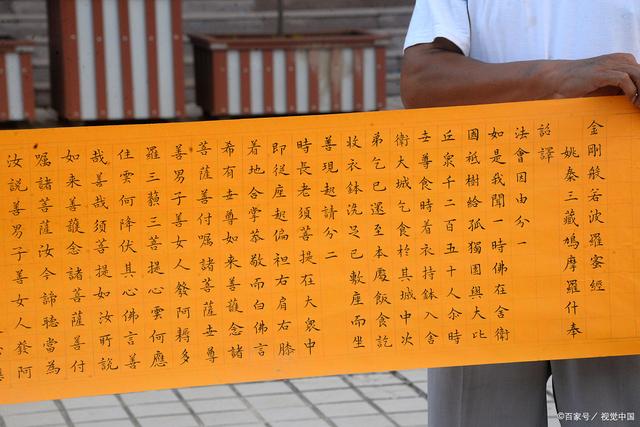 金剛般若波羅蜜經
姚秦三藏鳩摩羅什奉
詔譯
法會因由分一
如是我聞一時佛在舍衛
國祇樹給孤獨園與大比
丘衆千二百五十人尒時
世尊食時着衣持鉢入舍
衛大城乞食於其城中次
弟乞已還至本處飯食訖
收衣鉢洗足已敷座而坐
善現起請分二
時長老須菩提在大衆中
即從座起偏袒右肩右膝
着地合掌恭敬而白佛言
希有世尊如來善護念諸
菩薩善付囑諸菩薩世尊
善男子善女人發阿耨多
羅三藐三菩提心雲何應
住雲何降伏其心佛言善
哉善哉須菩提如汝所說
如來善護念諸菩薩善付
囑諸菩薩汝今諦聽當為
汝說善男子善女人發阿
©百家号／视觉中国